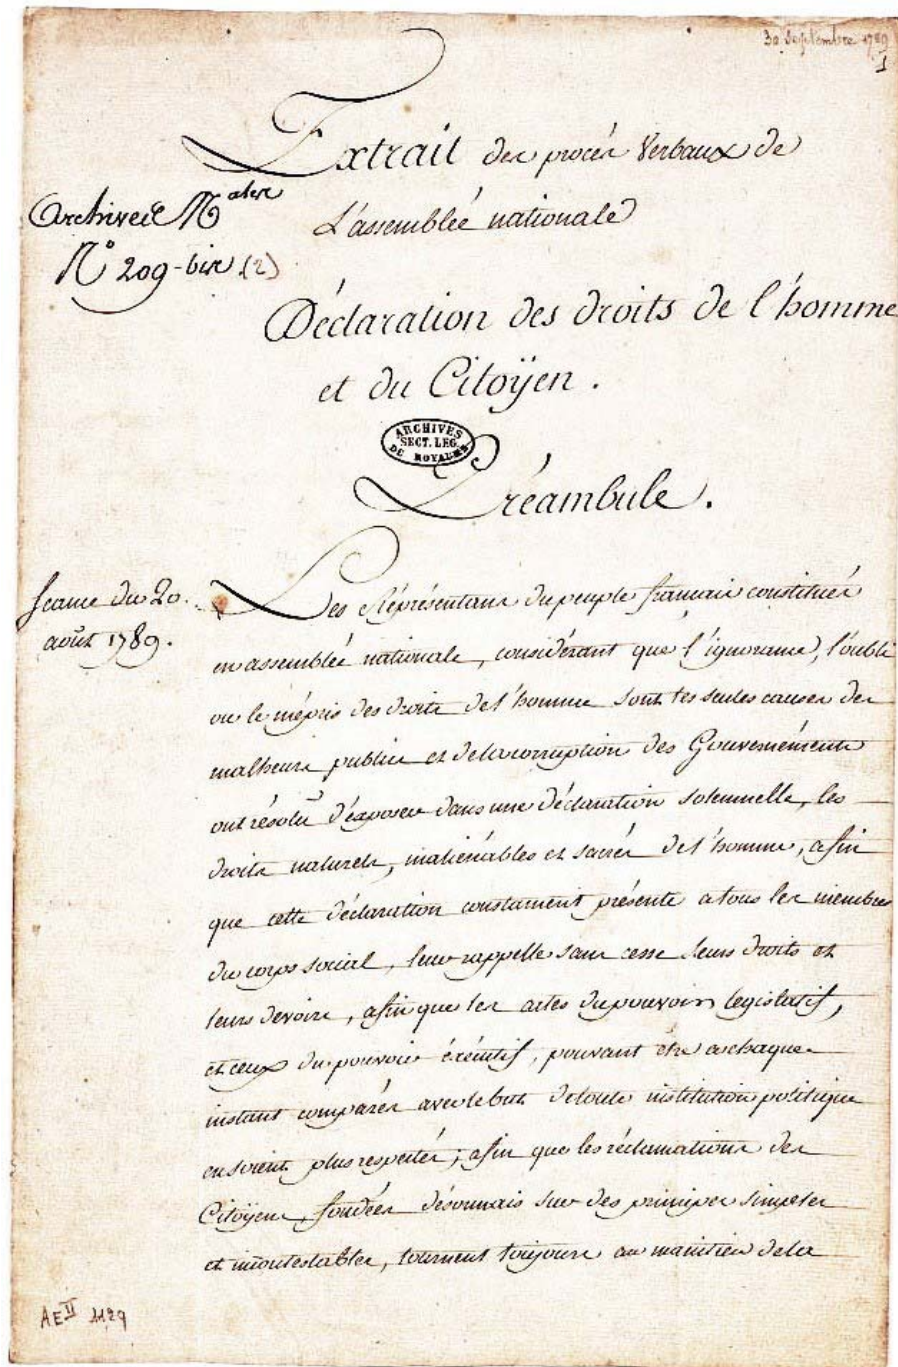 30 Septembre 1789
1
Extrait des procès Verbaux de
L'assemblée nationale
Archives Nales
N° 209-bis (2)
Déclaration des droits de l'homme
et du Citoÿen.
ARCHIVES
SECT. LEG.
DU ROYAUME
Préambule.
Séance du 20.
août 1789.
Les Réprésentans du peuple francais constitués
en assemblée nationale, considérant que l'ignorance, l'oubli
ou le mépris des droits de l'homme sont les seules causes des
malheurs publics et de la corruption des Gouvernéments
ont résolu d'éxposer dans une déclaration solemnelle, les
droits naturels, inaliénables et sacrés de l'homme, afin
que cette déclaration constament présente a tous les membres
du corps social, leur rappelle sans cesse leurs droits et
leurs devoirs, afin que les actes du pouvoir legislatif,
et ceux du pouvoir éxécutif, pouvant être a chaque
instant comparés avec le but de toute institution politique
en soient plus respectés; afin que les réclamations des
Citoÿens, fondées désormais sur des principes simples
et incontestables, tournent toujours au maintien de la
AE II 1129